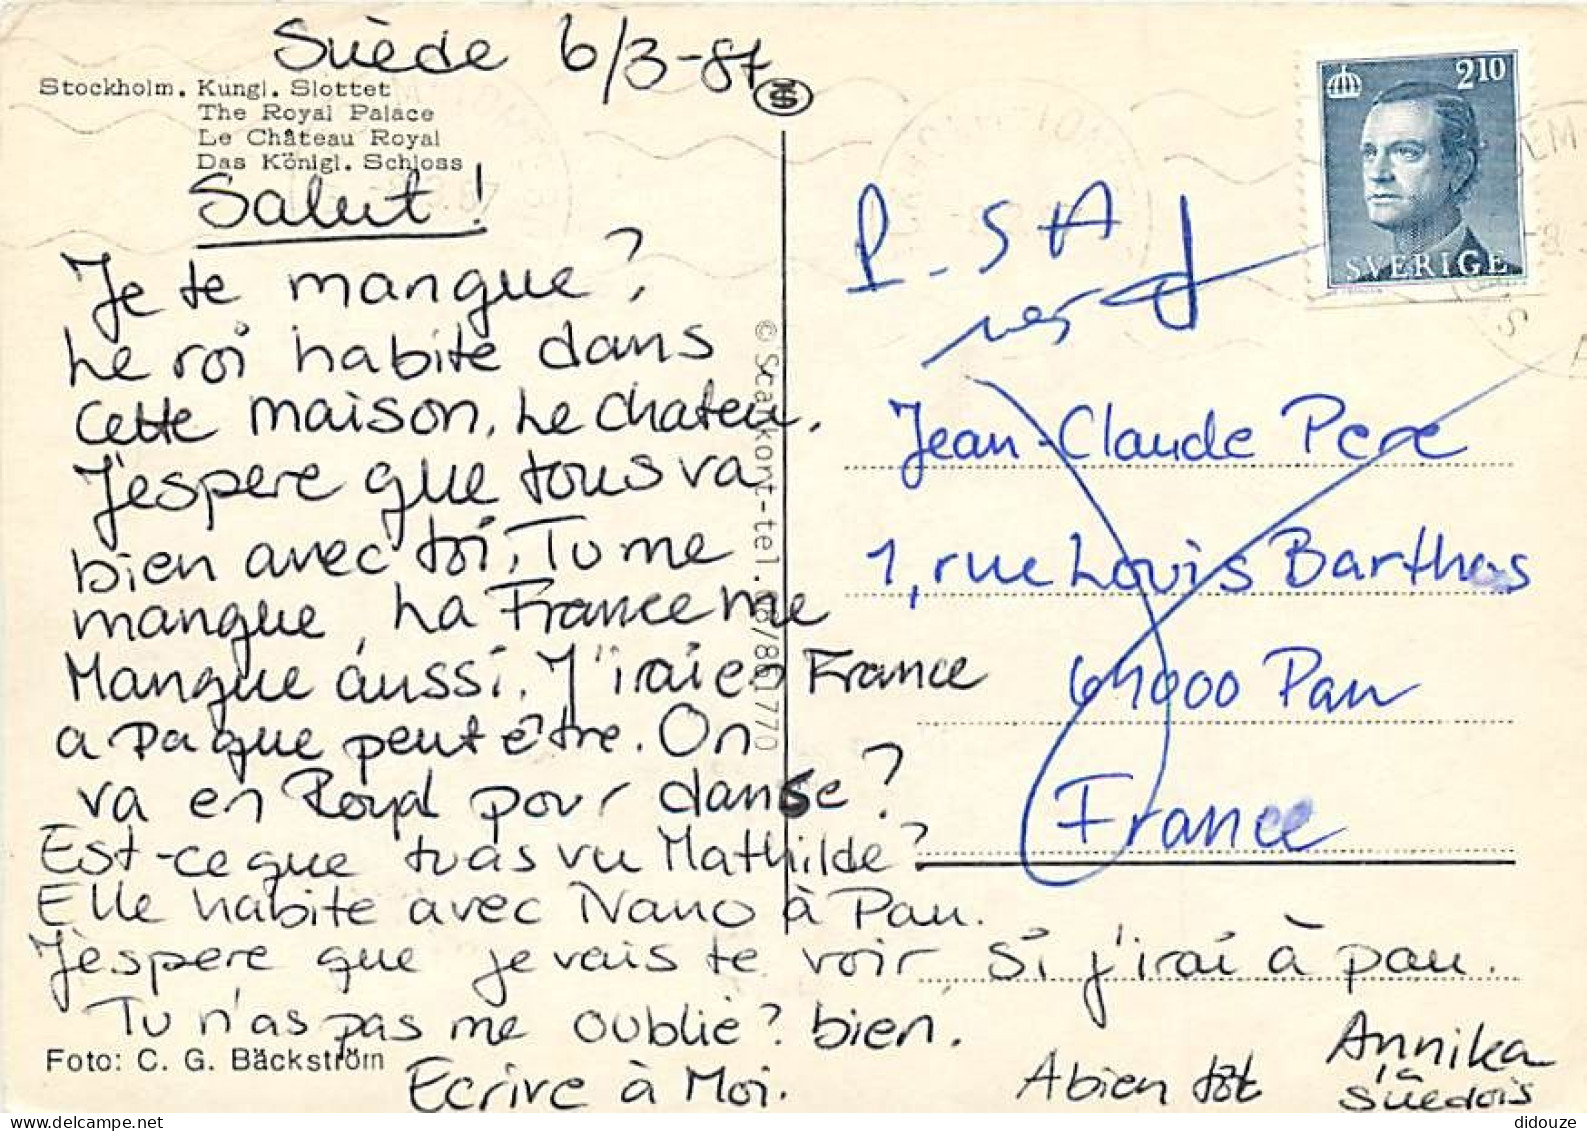 Suède 6/3-87
Stockholm. Kungl. Slottet
The Royal Palace
Le Château Royal
Das Königl. Schloss
Salut!
Je te mangue?
Le roi habite dans
cette maison. Le chateu.
J'espere que tous va
bien avec toi, Tu me
mangue, La France me
Mangue áussi. J'irai en France
a Paque peut être. On
va en Royal pour danse?
Est-ce que tu as vu Mathilde?
Elle habite avec Nano à Pau.
J'espere que je vais te voir si j'irai à pau.
Tu n'as pas me oublié? bien.
Ecrire à Moi.
Abien tôt
Annika
la
Suedois
Foto: C. G. Bäckström
© Scankont-tel.
2 10
SVERIGE
P.S A
Jean-Claude Pere
1, rue Louis Barthas
64000 Pau
France
didouze